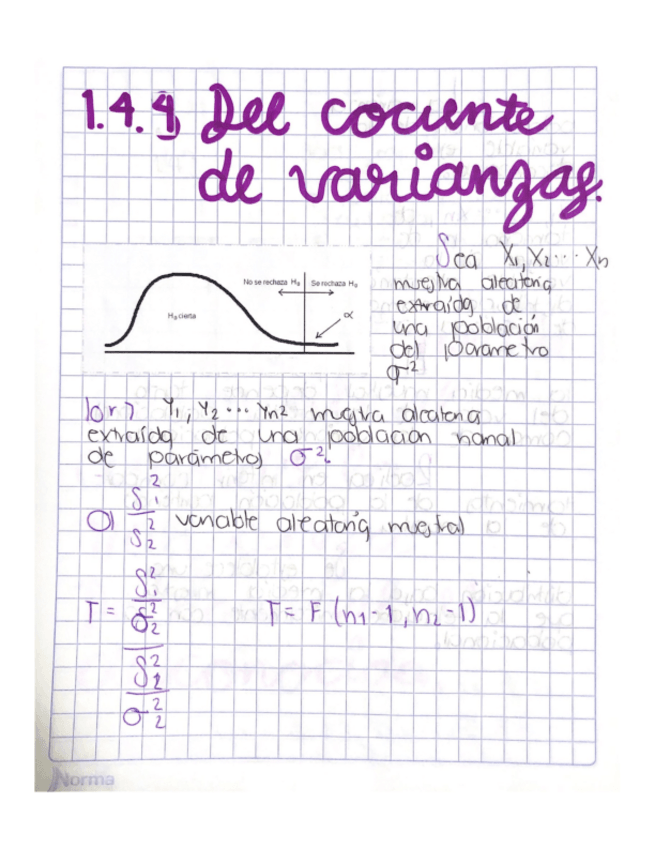 1.4.4 Del cociente
de varianzas.
No se rechaza H₀ Se rechaza H₀
H₀ cierta
α
Sea X₁, X₂ ... Xn
muestra aleatoria
extraída de
una población
del parametro
σ²
Y₁, Y₂ ... Yn2 muestra aleatoria
extraída de una poblacion normal
de parámetros σ²
S₁²
S₂² variable aleatoria muestral
T = S₁²/σ₂² / S₂²/σ₂² T = F (n₁-1, n₂-1)
Norma